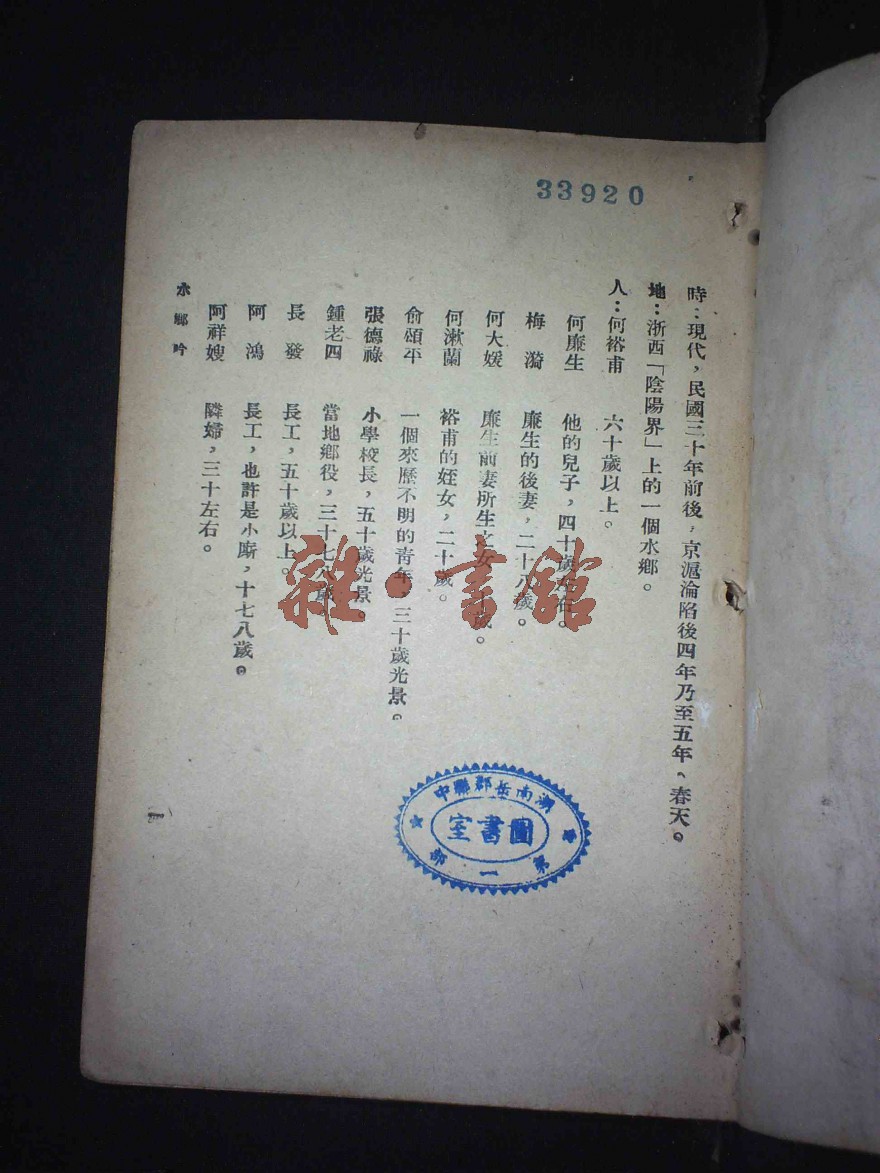 33920
時：現代，民國三十年前後，京滬淪陷後四年乃至五年、春天。
地：浙西「陰陽界」上的一個水鄉。
人：何裕甫 六十歲以上。
何廉生 他的兒子，四十歲左右。
梅漪 廉生的後妻，二十八歲。
何大媛 廉生前妻所生之女 歲。
何漱蘭 裕甫的姪女，二十歲。
俞頌平 一個來歷不明的青年，三十歲光景。
張德祿 小學校長，五十歲光景。
鍾老四 當地鄉役，三十七八歲。
長發 長工，五十歲以上。
阿鴻 長工，也許是小廝，十七八歲。
阿祥嫂 隣婦，三十左右。
水鄉吟
一
湖南岳郡聯中
圖書室
第一部
雜·書館